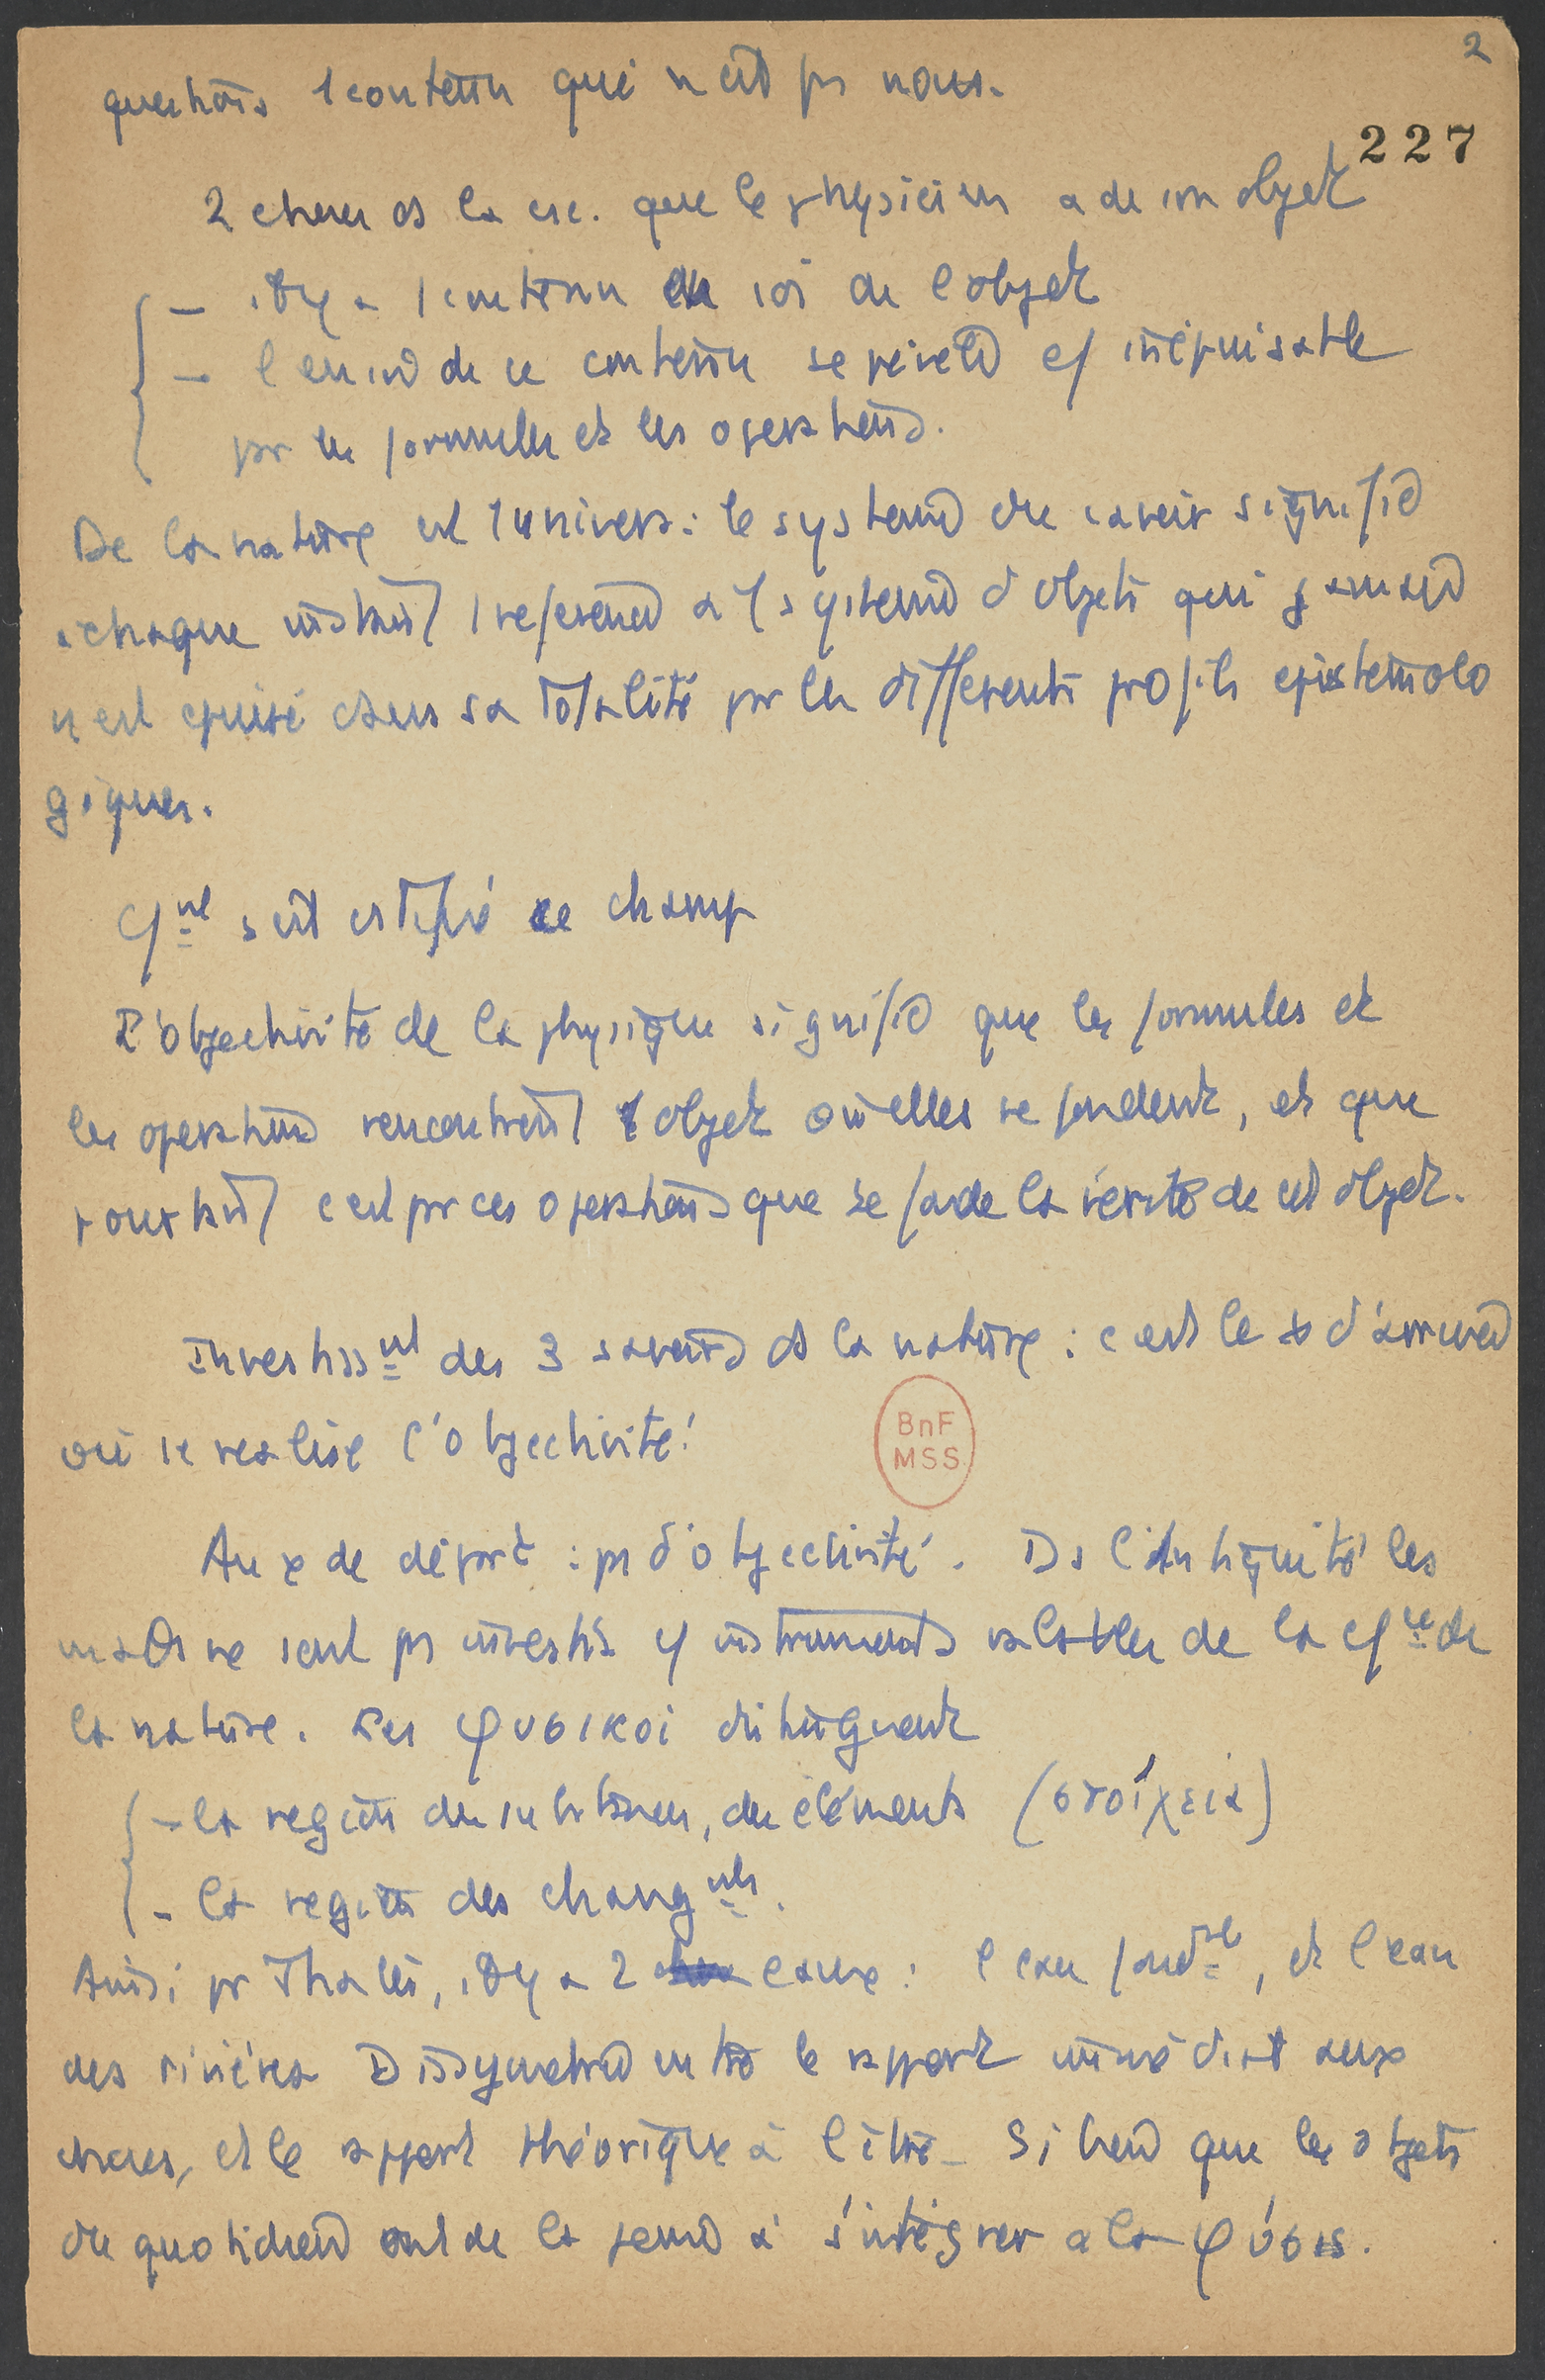 2
questions 1 contenu qui n'est pas nous.
227
2 choses ds la csc. que le physicien a de son objet
- il y a 1 contenu en soi de l'objet
- l'en soi de ce contenu se révèle cf inépuisable
par les formules et les opérations.
De la nature est l'univers : le système du savoir signifie
à chaque instant 1 référence à 1 système d'objets qui jamais
n'est épuisé dans sa totalité par les différents profils épistémolo
giques.
Cf nt s'est ce champ
L'objectivité de la physique signifie que les formules et
les opérations rencontrent 1 objet où elles se fondent, et que
pourtant c'est par ces opérations que se fonde la vérité de cet objet.
Investissnt des 3 savoirs ds la nature : c'est le x d'arrivée
où se réalise l'objectivité.
Au x de départ : pas d'objectivité. Ds l'Antiquité les
maths ne sont pas investis cf instruments valables de la cf ce de
la nature. Les φυσικοι distinguent
- la région des substances, des éléments (στοίχεια)
- la région des changnts.
Ainsi pr Thalès, il y a 2 eaux : l'eau fondale, et l'eau
des rivières. Dissymétrie entre le rapport immédiat aux
choses, et le rapport théorique à l'être. Si bien que les objets
du quotidien ont de la peine à s'intégrer à la φύσις.
BnF
MSS